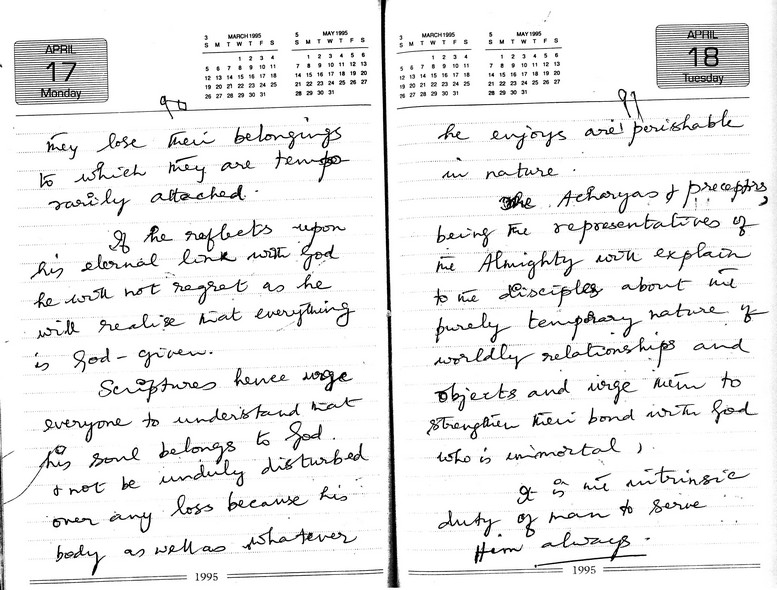 APRIL
17
Monday
3 MARCH 1995
S M T W T F S
1 2 3 4
5 6 7 8 9 10 11
12 13 14 15 16 17 18
19 20 21 22 23 24 25
26 27 28 29 30 31
5 MAY 1995
S M T W T F S
1 2 3 4 5 6
7 8 9 10 11 12 13
14 15 16 17 18 19 20
21 22 23 24 25 26 27
28 29 30 31
90
they lose their belongings
to which they are tempo
rarily attached.
If he reflects upon
his eternal link with God
he will not regret as he
will realise that everything
is God-given.
Scriptures hence urge
everyone to understand that
his soul belongs to God.
& not be unduly disturbed
over any loss because his
body as well as whatever
1995
3 MARCH 1995
S M T W T F S
1 2 3 4
5 6 7 8 9 10 11
12 13 14 15 16 17 18
19 20 21 22 23 24 25
26 27 28 29 30 31
5 MAY 1995
S M T W T F S
1 2 3 4 5 6
7 8 9 10 11 12 13
14 15 16 17 18 19 20
21 22 23 24 25 26 27
28 29 30 31
APRIL
18
Tuesday
91
he enjoys are perishable
in nature.
The Acharyas & preceptors,
being the representatives of
the Almighty will explain
to the disciples about the
purely temporary nature of
worldly relationships and
objects and urge them to
strengthen their bond with God
who is immortal,
It is the intrinsic
duty of man to serve
Him always.
1995